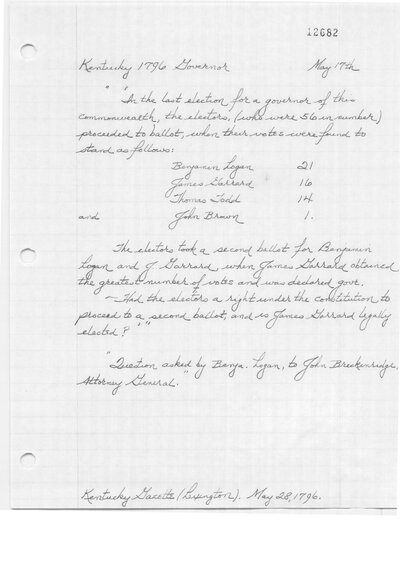 12682
Kentucky 1796 Governor May 17th
" "In the last election for a governor of this
commonwealth, the electors, (who were 56 in number)
proceeded to ballot, when their votes were found to
stand as follows:
Benjamin Logan 21
James Garrard 16
Thomas Todd 14
and John Brown 1.
The electors took a second ballot for Benjamin
Logan and J Garrard, when James Garrard obtained
the greatest number of votes and was declared govr.
— Had the electors a right under the constitution to
proceed to a second ballot, and is James Garrard legally
elected?" "
"Question asked by Benja. Logan, to John Breckenridge,
Attorney General."
Kentucky Gazette (Lexington). May 28, 1796.